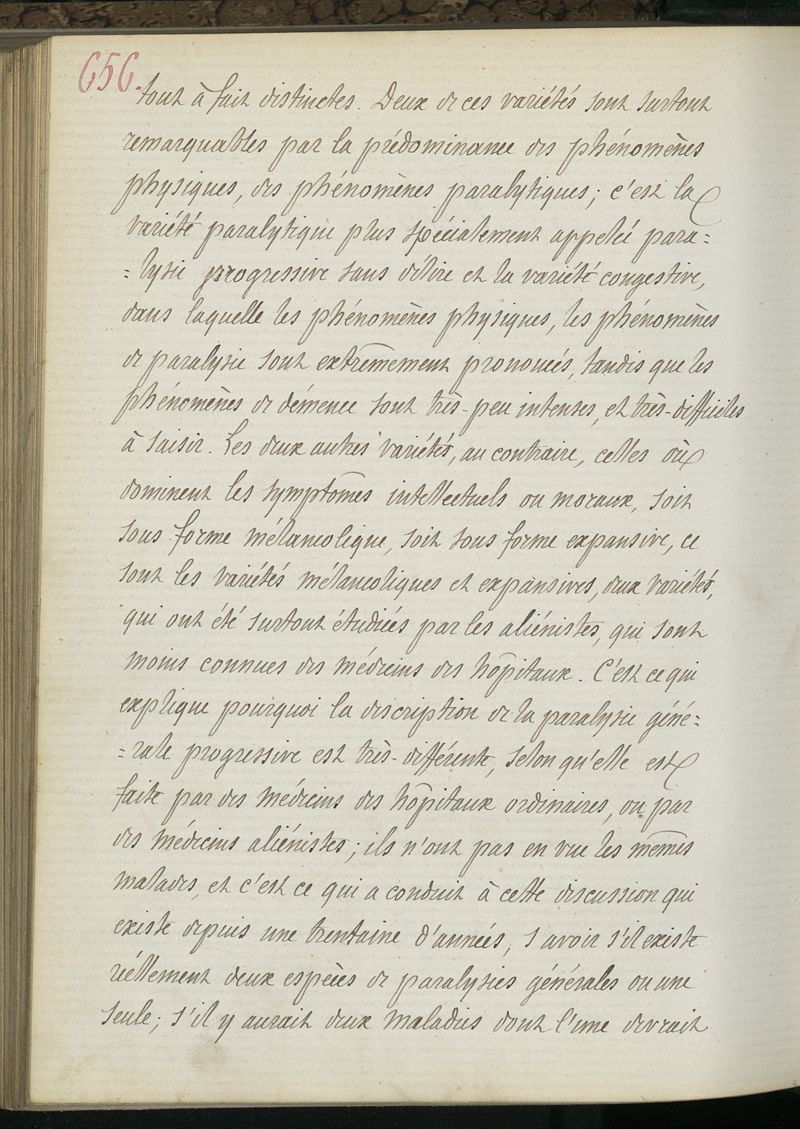 656.
tout à fait distinctes. Deux de ces variétés sont surtout
remarquables par la prédominance des phénomènes
physiques, des phénomènes paralytiques; c'est la
variété paralytique plus spécialement appelée para=
=lysie progressive sans délire et la variété congestive,
dans laquelle les phénomènes physiques, les phénomènes
de paralysie sont extrêmement prononcés, tandis que les
phénomènes de démence sont très-peu intenses, et très-difficiles
à saisir. Les deux autres variétés, au contraire, celles où
dominent les symptômes intellectuels ou moraux, soit
sous forme mélancolique, soit sous forme expansive, ce
sont les variétés mélancoliques et expansives, deux variétés,
qui ont été surtout étudiées par les aliénistes, qui sont
moins connues des médecins des hôpitaux. C'est ce qui
explique pourquoi la description de la paralysie géné=
=rale progressive est très-différente, selon qu'elle est
faite par des médecins des hôpitaux ordinaires, ou par
des médecins aliénistes; ils n'ont pas en vue les mêmes
malades, et c'est ce qui a conduit à cette discussion qui
existe depuis une trentaine d'années, savoir s'il existe
réellement deux espèces de paralysies générales ou une
seule; s'il y aurait deux maladies dont l'une devrait